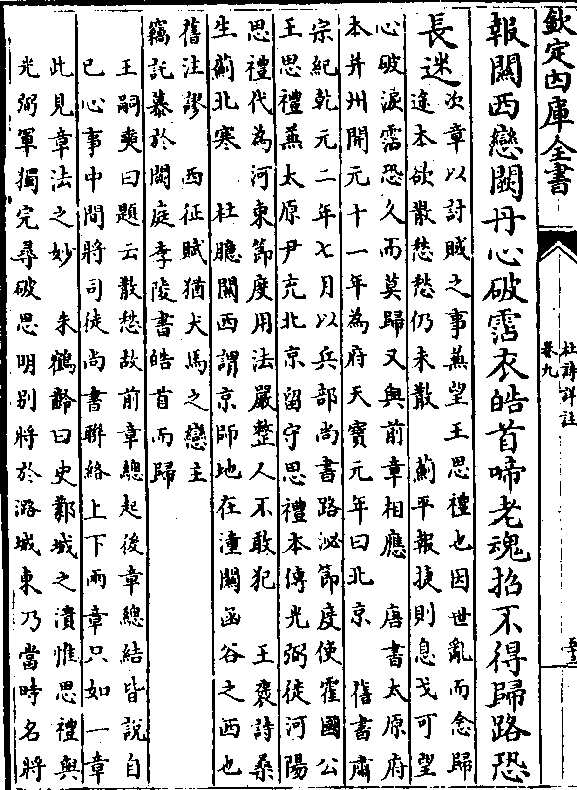 欽定四庫全書
杜詩詳註
卷九
報關西戀闕丹心破霑衣皓首啼老魂招不得歸路恐
長迷
次章以討賊之事兼望王思禮也因世亂而念歸
途本欲散愁愁仍未散　薊平報捷則息戈可望
心破淚霑恐久而莫歸又與前章相應　唐書太原府
本并州開元十一年為府天寶元年曰北京　舊書肅
宗紀乾元二年七月以兵部尚書路泌節度使霍國公
王思禮兼太原尹充北京留守思禮本傳光弼徙河陽
思禮代為河東節度用法嚴整人不敢犯　王褒詩桑
生薊北寒　杜臆關西謂京師地在潼關函谷之西也
舊注謬　西征賦猶犬馬之戀主
竊託慕於闕庭李陵書皓首而歸
王嗣奭曰題云散愁故前章總起後章總結皆說自
已心事中間將司徒尚書聯絡上下兩章只如一章
此見章法之妙　朱鶴齡曰史鄴城之潰惟思禮與
光弼軍獨完尋破思明别將於潞城東乃當時名將